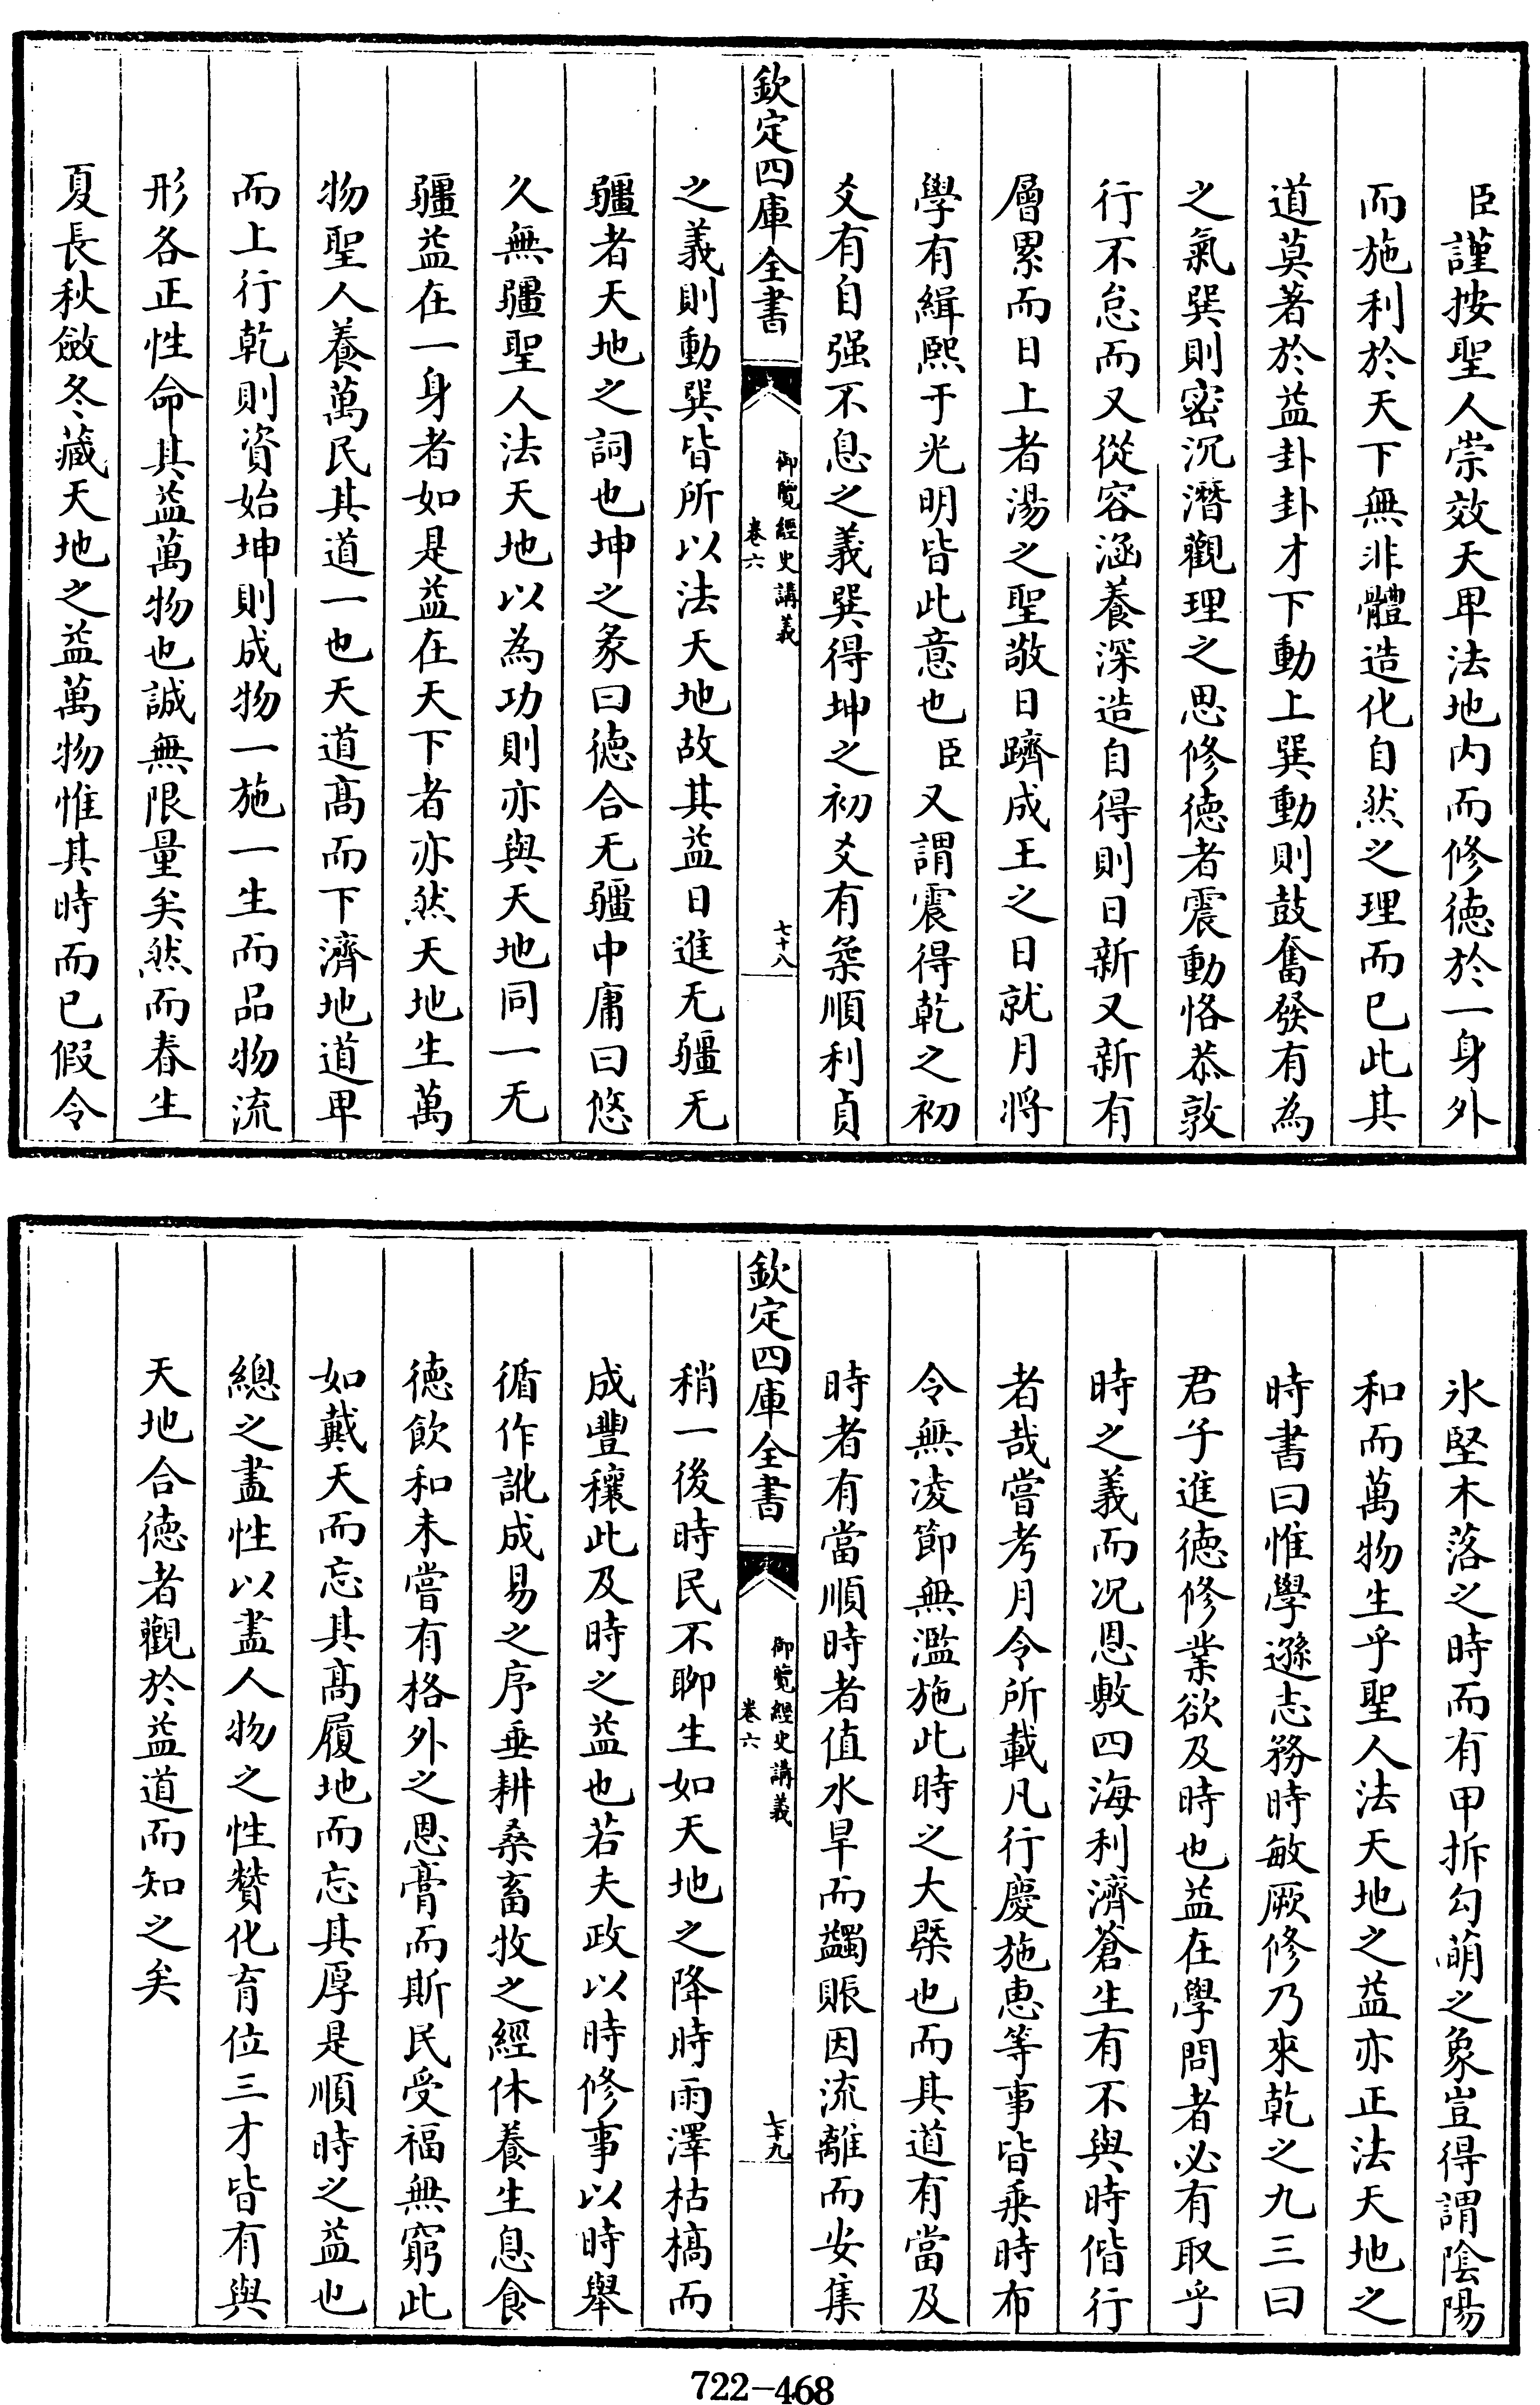 臣謹按聖人崇效天卑法地内而修徳於一身外
而施利於天下無非體造化自然之理而已此其
道莫著於益卦卦才下動上巽動則鼓奮發有為
之氣巽則密沉潛觀理之思修徳者震動恪恭敦
行不怠而又從容涵養深造自得則日新又新有
層累而日上者湯之聖敬日躋成王之日就月將
學有緝熙于光明皆此意也臣又謂震得乾之初
爻有自强不息之義巽得坤之初爻有柔順利貞
欽定四庫全書
御覽經史講義
卷六
七十八
之義則動巽皆所以法天地故其益日進无疆无
疆者天地之詞也坤之彖曰徳合无疆中庸曰悠
久無疆聖人法天地以為功則亦與天地同一无
疆益在一身者如是益在天下者亦然天地生萬
物聖人養萬民其道一也天道髙而下濟地道卑
而上行乾則資始坤則成物一施一生而品物流
形各正性命其益萬物也誠無限量矣然而春生
夏長秋斂冬藏天地之益萬物惟其時而已假令
氷堅木落之時而有甲拆勾萌之象豈得謂陰陽
和而萬物生乎聖人法天地之益亦正法天地之
時書曰惟學遜志務時敏厥修乃來乾之九三曰
君子進徳修業欲及時也益在學問者必有取乎
時之義而况恩敷四海利濟蒼生有不與時偕行
者哉嘗考月令所載凡行慶施恵等事皆乘時布
令無凌節無濫施此時之大槩也而其道有當及
時者有當順時者值水旱而蠲賑因流離而安集
欽定四庫全書
御覽經史講義
卷六
七十九
稍一後時民不聊生如天地之降時雨澤枯槁而
成豐穰此及時之益也若夫政以時修事以時舉
循作訛成易之序垂耕桑畜牧之經休養生息食
徳飲和未嘗有格外之恩膏而斯民受福無窮此
如戴天而忘其髙履地而忘其厚是順時之益也
總之盡性以盡人物之性贊化育位三才皆有與
天地合徳者觀於益道而知之矣
722-468